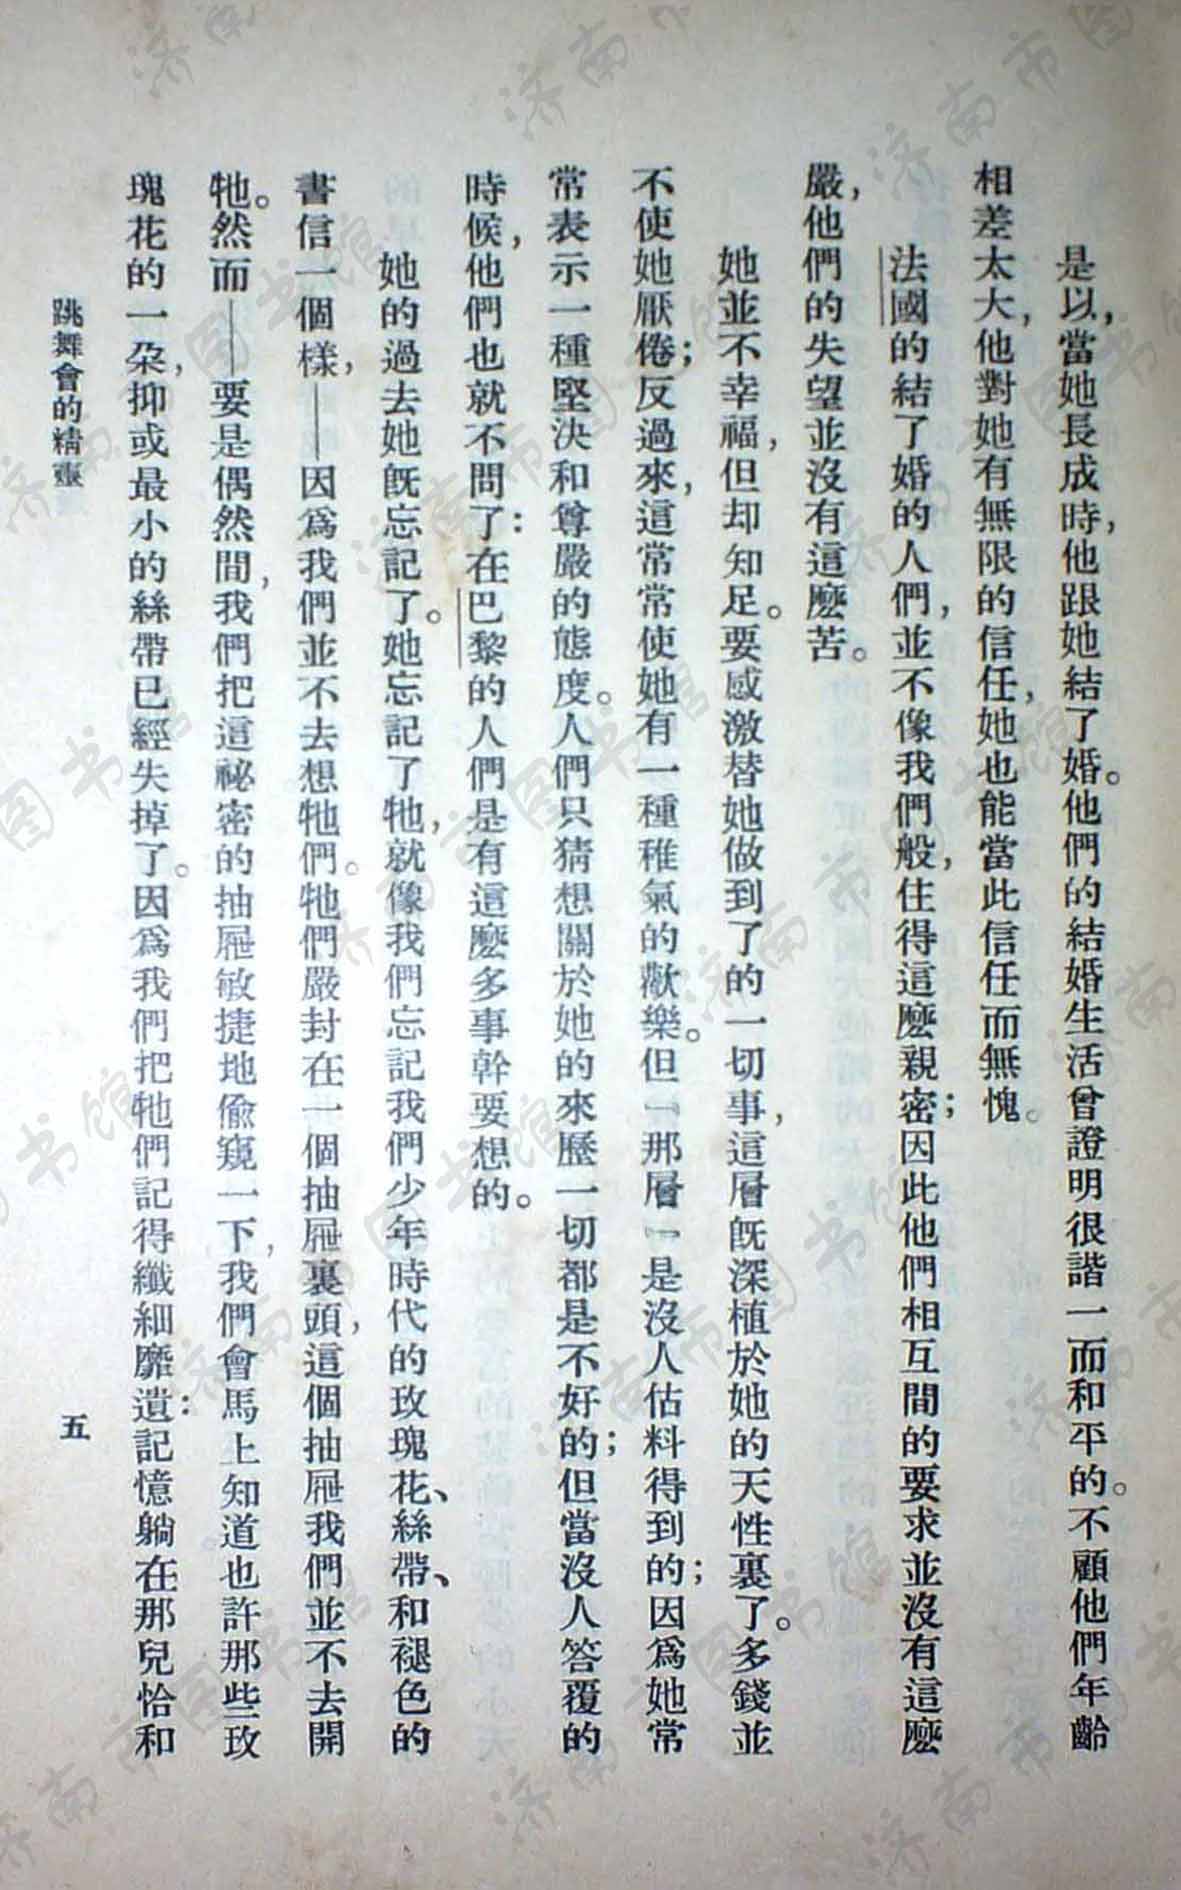 是以,當她長成時,他跟她結了婚。他們的結婚生活曾證明很諧一而和平的。不顧他們年齡
相差太大,他對她有無限的信任,她也能當此信任而無愧。
法國的結了婚的人們,並不像我們般,住得這麼親密;因此他們相互間的要求並沒有這麼
嚴,他們的失望並沒有這麼苦。
她並不幸福,但却知足。要感激替她做到了的一切事,這層旣深植於她的天性裏了。多錢並
不使她厭倦;反過來,這常常使她有一種稚氣的歡樂。但「那層」是沒人估料得到的;因爲她常
常表示一種堅決和尊嚴的態度。人們只猜想關於她的來歷一切都是不好的;但當沒人答覆的
時候,他們也就不問了:在巴黎的人們是有這麼多事幹要想的。
她的過去她旣忘記了。她忘記了牠,就像我們忘記我們少年時代的玫瑰花、絲帶、和褪色的
書信一個樣,——因爲我們並不去想牠們。牠們嚴封在一個抽屜裏頭,這個抽屜我們並不去開
牠。然而——要是偶然間,我們把這祕密的抽屜敏捷地偷窺一下,我們會馬上知道也許那些玫
瑰花的一朶,抑或最小的絲帶已經失掉了。因爲我們把牠們記得纖細靡遺:記憶躺在那兒恰和
跳舞會的精靈
五
济南市图书馆